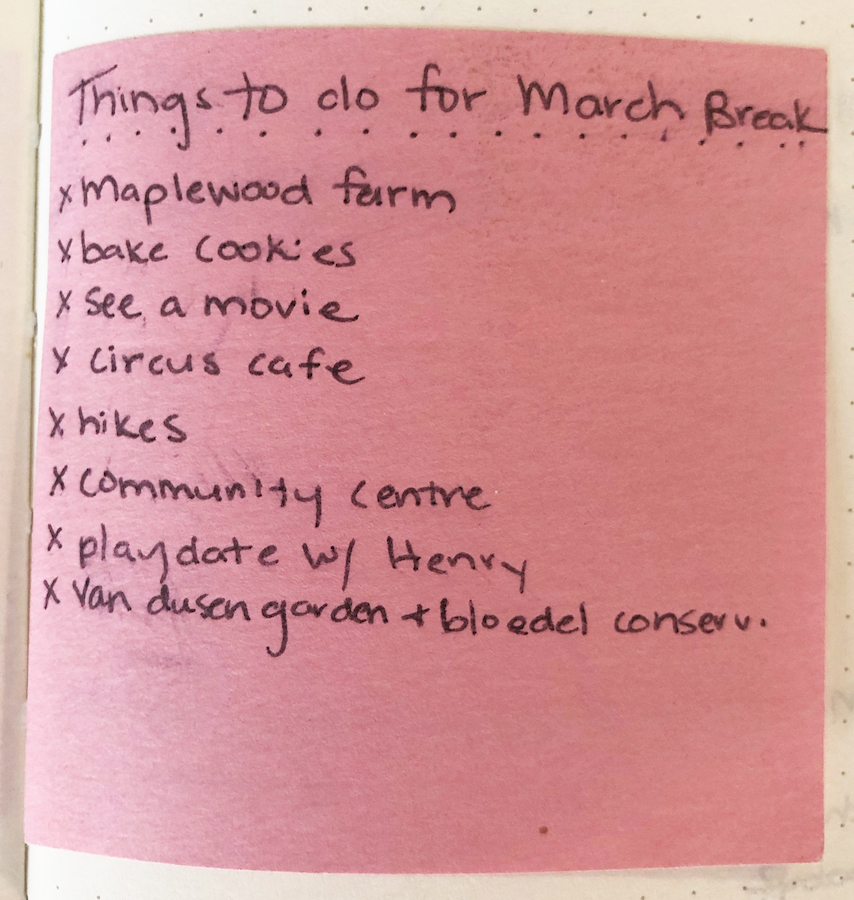 Things to do for March Break
x Maplewood farm
x bake cookies
x see a movie
x circus cafe
x hikes
x community centre
x playdate w/ Henry
x Van dusen garden + bloedel conserv.